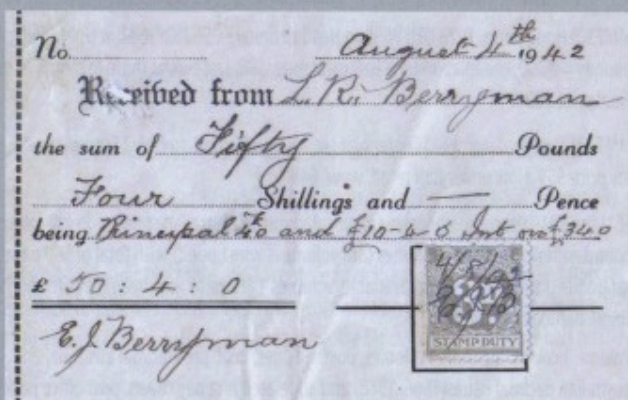 No. August 4th 1942
Received from L. R. Berryman
the sum of Fifty Pounds
Four Shillings and — Pence
being Principal £40 and £10-4-0 Int on £340
£ 50 : 4 : 0
E. J. Berryman
STAMP DUTY